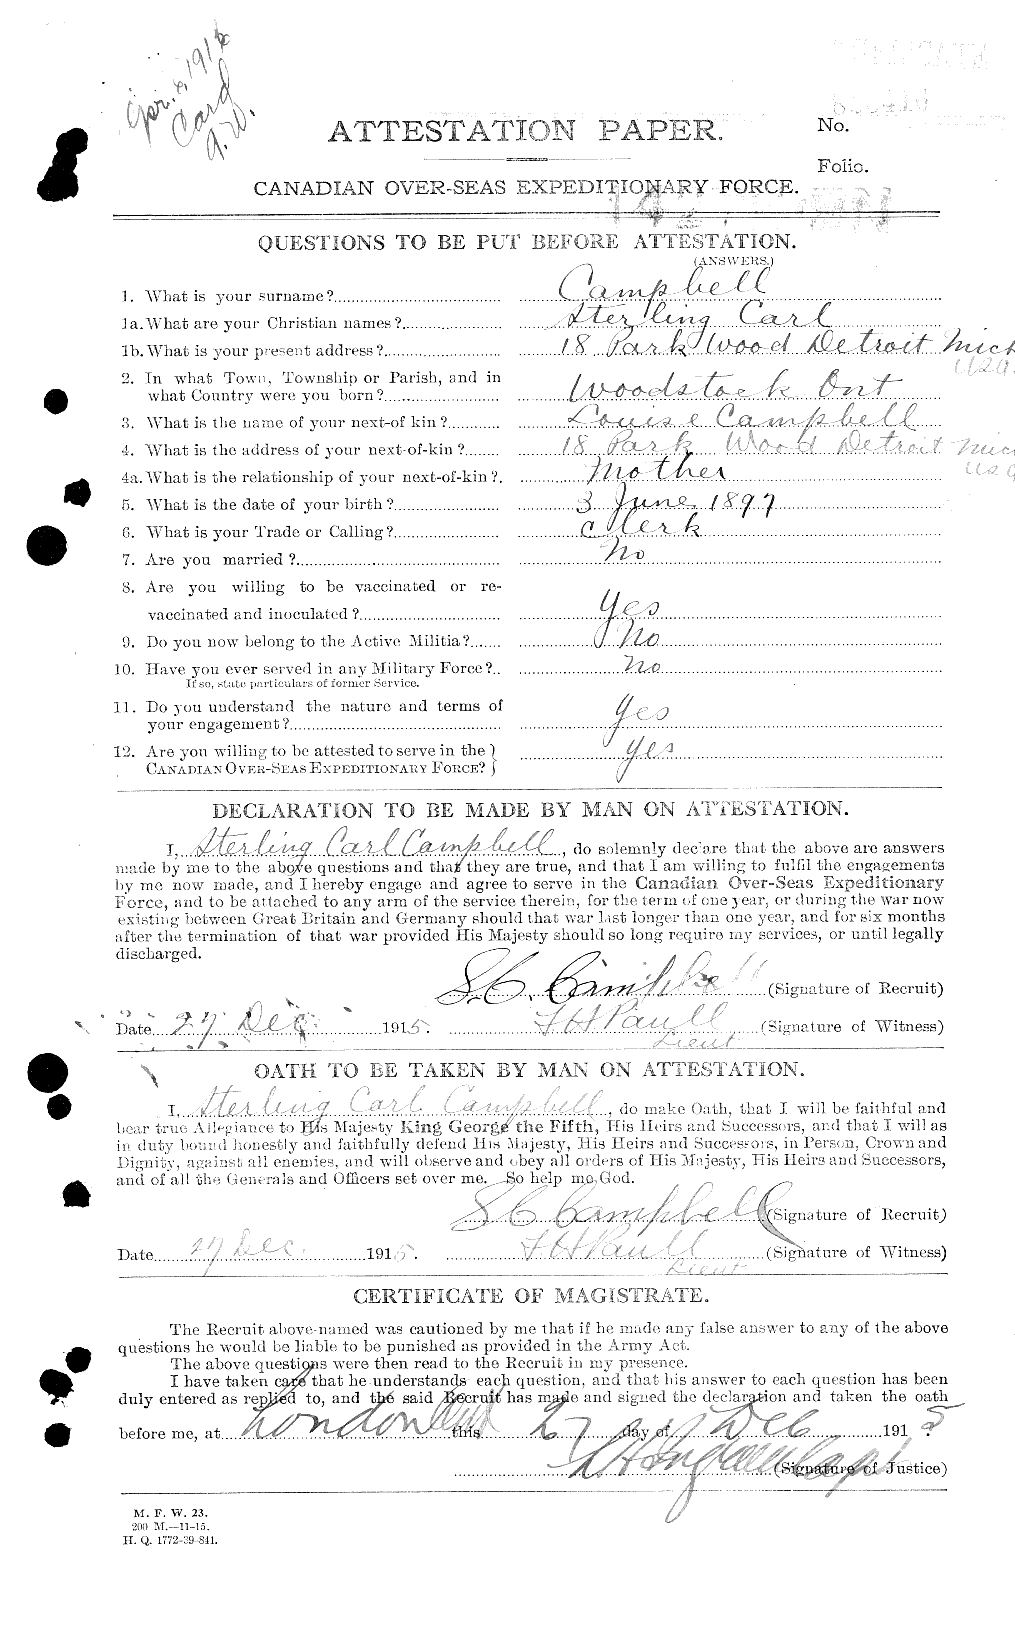 Apr. 6, 1916
Card
A.W.
ATTESTATION PAPER.
No.
Folio.
CANADIAN OVER-SEAS EXPEDITIONARY FORCE.
142
QUESTIONS TO BE PUT BEFORE ATTESTATION.
(ANSWERS.)
1. What is your surname? Campbell
1a. What are your Christian names? Sterling Carl
1b. What is your present address? 18 Park Wood Detroit Mich
USA.
2. In what Town, Township or Parish, and in
what Country were you born? Woodstock Ont
3. What is the name of your next-of kin? Louise Campbell
4. What is the address of your next-of-kin? 18 Park Wood Detroit Mich
4a. What is the relationship of your next-of-kin? Mother
5. What is the date of your birth? 3 June. 1897
6. What is your Trade or Calling? Clerk
7. Are you married? No
8. Are you willing to be vaccinated or re-
vaccinated and inoculated? Yes
9. Do you now belong to the Active Militia? No
10. Have you ever served in any Military Force? No
If so, state particulars of former Service.
11. Do you understand the nature and terms of
your engagement? Yes
12. Are you willing to be attested to serve in the
CANADIAN OVER-SEAS EXPEDITIONARY FORCE? Yes
DECLARATION TO BE MADE BY MAN ON ATTESTATION.
I, Sterling Carl Campbell, do solemnly declare that the above are answers
made by me to the above questions and that they are true, and that I am willing to fulfil the engagements
by me now made, and I hereby engage and agree to serve in the Canadian Over-Seas Expeditionary
Force, and to be attached to any arm of the service therein, for the term of one year, or during the war now
existing between Great Britain and Germany should that war last longer than one year, and for six months
after the termination of that war provided His Majesty should so long require my services, or until legally
discharged.
S.C. Campbell (Signature of Recruit)
Date 27 Dec 1915. F H Paull (Signature of Witness)
Lieut
OATH TO BE TAKEN BY MAN ON ATTESTATION.
I, Sterling Carl Campbell, do make Oath, that I will be faithful and
bear true Allegiance to His Majesty King George the Fifth, His Heirs and Successors, and that I will as
in duty bound honestly and faithfully defend His Majesty, His Heirs and Successors, in Person, Crown and
Dignity, against all enemies, and will observe and obey all orders of His Majesty, His Heirs and Successors,
and of all the Generals and Officers set over me. So help me God.
S C Campbell (Signature of Recruit)
Date 27 Dec. 1915. F H Paull (Signature of Witness)
Lieut
CERTIFICATE OF MAGISTRATE.
The Recruit above-named was cautioned by me that if he made any false answer to any of the above
questions he would be liable to be punished as provided in the Army Act.
The above questions were then read to the Recruit in my presence.
I have taken care that he understands each question, and that his answer to each question has been
duly entered as replied to, and the said Recruit has made and signed the declaration and taken the oath
before me, at London Ont this 27 day of Dec 1915
(Signature of Justice)
M. F. W. 23.
200 M.—11-15.
H. Q. 1772-39-841.